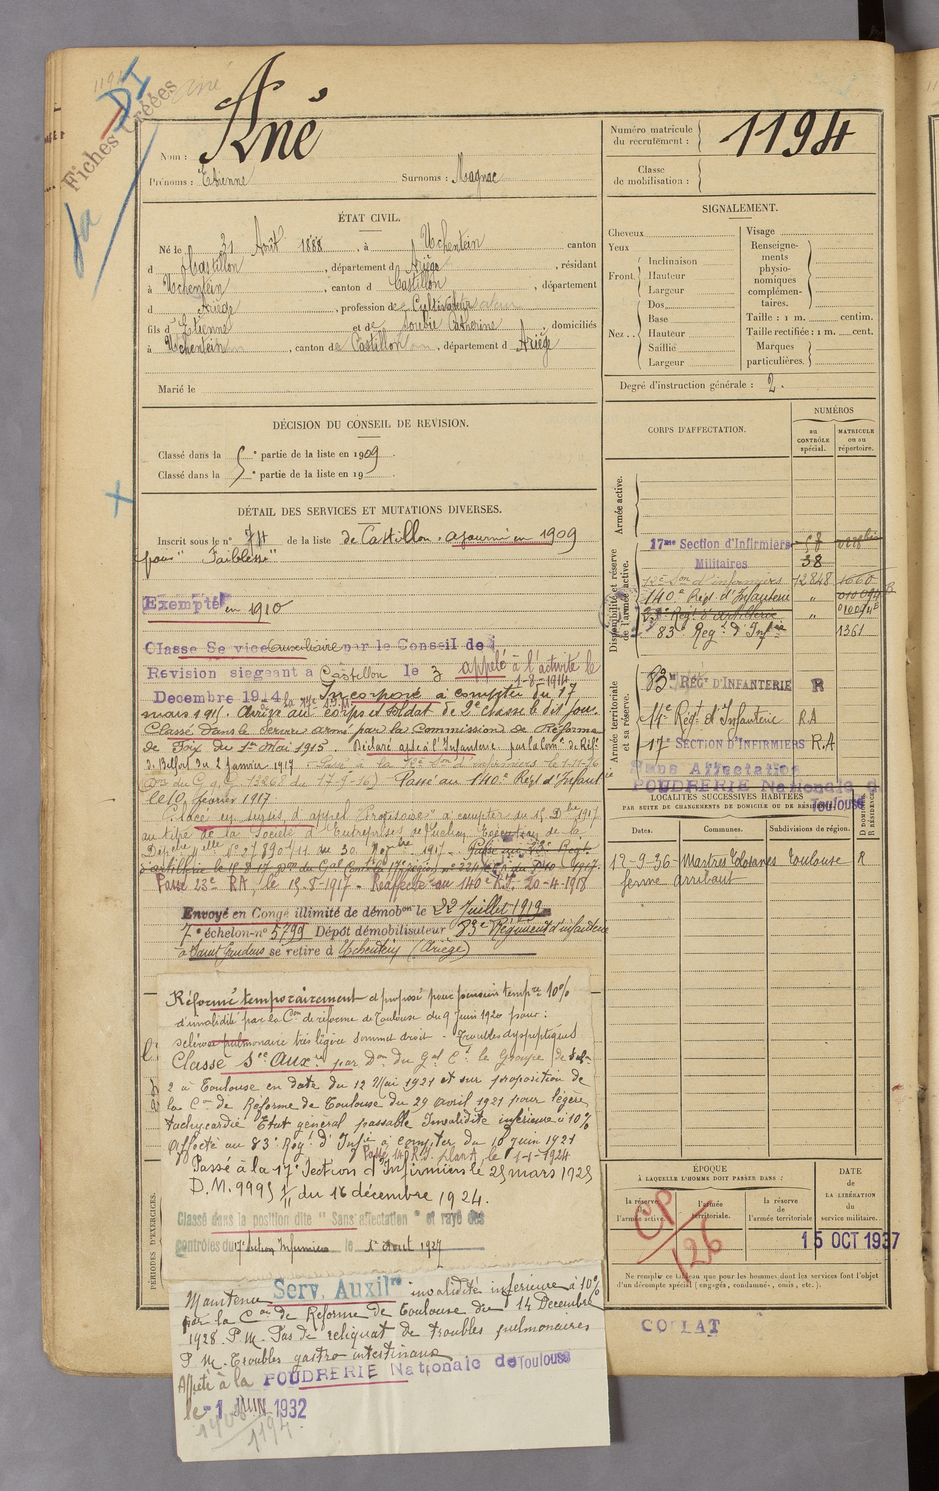 Fiches Créées
DI
Nom : Ané
Prénoms : Etienne Surnoms : Magnac
Numéro matricule du recrutement : 1194
Classe de mobilisation :
ÉTAT CIVIL.
Né le 31 Août 1888, à Uchentein canton
d Castillon, département d Ariège, résidant
à Uchentein, canton d Castillon, département
d Ariège, profession de Cultivateur
fils d' Etienne et de Soubie Catherine, domiciliés
à Uchentein, canton de Castillon, département d Ariège
Marié le
SIGNALEMENT.
Cheveux
Yeux
Front. Inclinaison
Hauteur
Largeur
Nez Dos
Base
Hauteur
Saillie
Largeur
Visage
Renseignements physionomiques complémentaires.
Taille : 1 m. centim.
Taille rectifiée : 1 m. cent.
Marques particulières.
Degré d'instruction générale : 2.
DÉCISION DU CONSEIL DE REVISION.
Classé dans la 5e partie de la liste en 1909.
Classé dans la e partie de la liste en 19
DÉTAIL DES SERVICES ET MUTATIONS DIVERSES.
Inscrit sous le n° 74 de la liste de Castillon. ajourné en 1909
pour "Faiblesse"
Exempté en 1910
Classe Service Auxiliaire par le Conseil de
Revision siegeant a Castillon le 3 appelé à l'activité le
Decembre 1914 Incorporé à compter du 17
mars 1915. Arrivé au corps et soldat de 2e classe le dit jour.
Classé dans le Service armé par la Commission de Réforme
de Foix du 1er Mai 1915. Déclaré apte à l'Infanterie par la Com. de Réf.
de Belfort du 2 Janvier 1917
Passé au 140e Régt d'Infanterie
le 10 février 1917
Placé en sursis d'appel
au titre de la Société d'Entreprises de Luchon Exécution de la
Passé 23e RA, le 15-8-1917. Réaffecté au 140e R.I. 20-4-1918
Envoyé en Congé illimité de démobon le 22 Juillet 1919
7e échelon-n° 5799 Dépôt démobilisateur 83e Régiment d'infanterie
à Saint Gaudens se retire à Uchentein (Ariège)
Réformé temporairement et proposé pour pension tempre 10%
d'invalidité par la Con de réforme de Toulouse du 9 Juin 1920 pour :
sclérose pulmonaire très légère sommet droit. Troubles dyspeptiques
Classé sce Auxre par Don du Gal Ct le Groupe de Sub-
2 à Toulouse en date du 12 Mai 1921 et sur proposition de
la Con de Réforme de Toulouse du 29 avril 1921 pour légère
tachycardie Etat général passable Invalidité inférieure à 10%
Affecté au 83e Régt d'Infie à compter du 10 Juin 1921
Passé 14e R.I. le 1-1-1924
Passé à la 17e Section d'Infirmiers le 25 mars 1925
D.M. 9995 1/11 du 16 décembre 1924.
Classé dans la position dite "Sans affectation" et rayé des
contrôles du 17e Section Infirmiers le 1er Août 1927
Maintenu Serv. Auxilre invalidité inférieure à 10%
par la Con de Réforme de Toulouse du 14 Décembre
1928. P.M. Pas de reliquat de troubles pulmonaires
P.M. Troubles gastro intestinaux
Affecté à la POUDRERIE Nationale de Toulouse
le - 1 JUIN 1932
1194
CORPS D'AFFECTATION.
NUMÉROS
au CONTRÔLE spécial.
MATRICULE ou au répertoire.
Armée active.
Disponibilité et réserve de l'armée active.
17me Section d'Infirmiers 58
Militaires 38
12848 1660
140e Régt d'Infanterie "
23e Régt d'artillerie "
83e Régt d'Infie 1361
Armée territoriale et sa réserve.
83e REGt D'INFANTERIE R
14e Régt d'Infanterie R.A
17e SECTION D'INFIRMIERS R.A
Sans Affectation
POUDRERIE Nationale de Toulouse
LOCALITÉS SUCCESSIVES HABITÉES
PAR SUITE DE CHANGEMENTS DE DOMICILE OU DE RÉSIDENCE.
Dates. Communes. Subdivisions de région. D DOMICILE. R RÉSIDENCE.
12-9-36 Martres Tolosanes Toulouse R
ferme arribaut
PÉRIODES D'EXERCICES.
ÉPOQUE
À LAQUELLE L'HOMME DOIT PASSER DANS :
la réserve de l'armée active.
l'armée territoriale.
la réserve de l'armée territoriale
DATE DE LA LIBÉRATION du service militaire.
CP/126
15 OCT 1937
Ne remplir ce tableau que pour les hommes dont les services font l'objet
d'un décompte spécial (engagés, condamnés, omis, etc.).
COLLAT